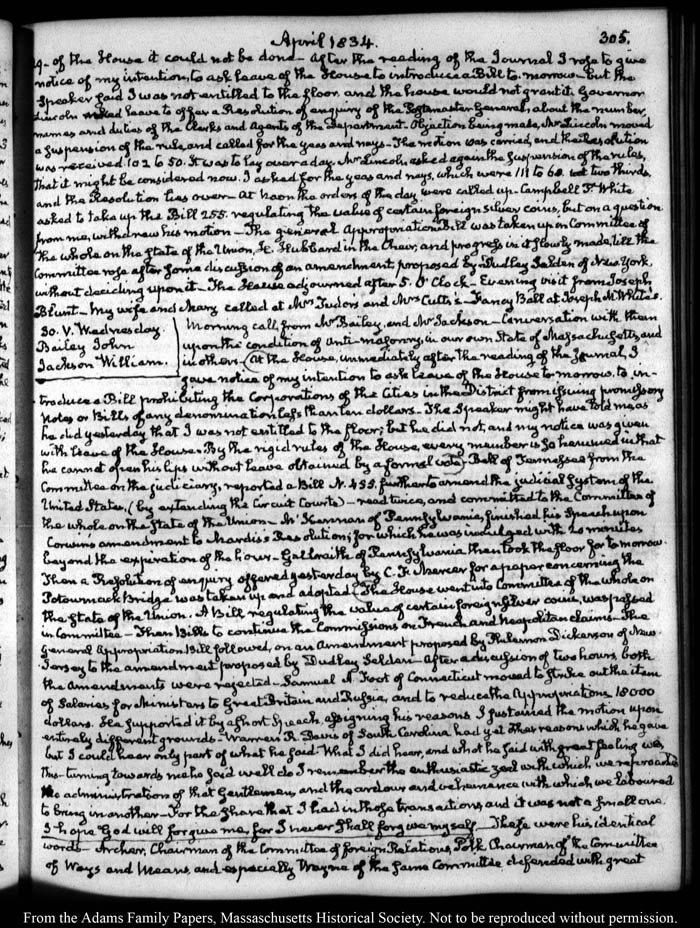 April 1834.
305.
29. of the House it could not be done— After the reading of the Journal I rose to give
notice of my intention, to ask leave of the House to introduce a Bill to-morrow— but the
Speaker said I was not entitled to the floor, and the house would not grant it. Governor
Lincoln asked leave to offer a Resolution of enquiry of the Postmaster General, about the number,
names and duties of the Clerks and Agents of the Department— Objection being made, Mr Lincoln moved
a suspension of the rule, and called for the yeas and nays— The motion was carried, and the Resolution
was received 102 to 50. It was to lay over a day. Mr Lincoln asked again the suspension of the rules,
that it might be considered now. I asked for the yeas and nays, which were 111 to 60. not two thirds,
and the Resolution lies over— At Noon the orders of the day were called up— Campbell P. White
asked to take up the Bill 255. regulating the value of certain foreign silver coins, but on a question
from me, withdrew his motion— The general Appropriation Bill was taken up in Committee of
the whole on the State of the Union, H. Hubbard in the Chair, and progress in it slowly made, till the
Committee rose after some discussion of an amendment proposed by Dudley Selden of New York,
without deciding upon it— The House adjourned after 5. O'Clock— Evening visit from Joseph
Blunt— My wife and Mary called at Mrs Tudor's and Mrs Cutts's— Fancy Ball at Joseph M. White's.
30. V. Wednesday.
Bailey John
Jackson William.
Morning call, from Mr Bailey, and Mr Jackson— Conversation with them
upon the condition of Anti-masonry, in our own State of Massachusetts, and
in others. At the House, immediately after the reading of the Journal, I
gave notice of my intention to ask leave of the House to-morrow, to in-
troduce a Bill prohibiting the Corporations of the Cities in the District from issuing promissory
Notes or Bills of any denomination less than ten dollars— The Speaker might have told me as
he did yesterday that I was not entitled to the floor; but he did not, and my notice was given
with leave of the House. By the rigid rules of the House, every member is so hemmed in that
he cannot open his lips without leave obtained by a formal vote. Bell of Tennessee from the
Committee on the judiciary, reported a Bill N. 455. further to amend the judicial System of the
United States, (by extending the Circuit Courts)— read twice, and committed to the Committee of
the whole on the State of the Union— Mr Kennan of Pennsylvania, finished his Speech upon
Corwin's amendment to Mardis's Resolution; for which he was indulged with 20 minutes
beyond the expiration of the hour— Galbraith of Pennsylvania then took the floor for to-morrow.
Then a Resolution of enquiry offered yesterday by C. F. Mercer for a paper concerning the
Potowmack Bridge was taken up and adopted. The House went into Committee of the whole on
the State of the Union. A Bill regulating the value of certain foreign silver coins, was passed
in Committee— Then Bills to continue the Commissions on French and Neapolitan claims— The
General Appropriation Bill followed, on an Amendment proposed by Philemon Dickerson of New-
Jersey to the amendment proposed by Dudley Selden— After a discussion of two hours, both
the Amendments were rejected— Samuel A. Foot of Connecticut moved to strike out the item
of Salaries for Ministers to Great Britain and Russia, and to reduce the Appropriations 18000
dollars. He supported it by a short Speech, assigning his reasons. I sustained the motion upon
entirely different grounds— Warren R. Davis of South Carolina had yet other reasons which he gave
but I could hear only part of what he said. What I did hear, and what he said with great feeling was
this— turning towards me he said well do I remember the enthusiastic zeal with which we reproached
the administration of that Gentleman, and the ardour and vehemence with which we laboured
to bring in another— For the share that I had in those transactions, and it was not a small one.
I hope God will forgive me, for I never shall forgive myself. These were his identical
words— Archer, Chairman of the Committee of foreign Relations, Polk Chairman of the Committee
of Ways and Means, and especially Wayne of the same Committee defended with great
From the Adams Family Papers, Massachusetts Historical Society. Not to be reproduced without permission.